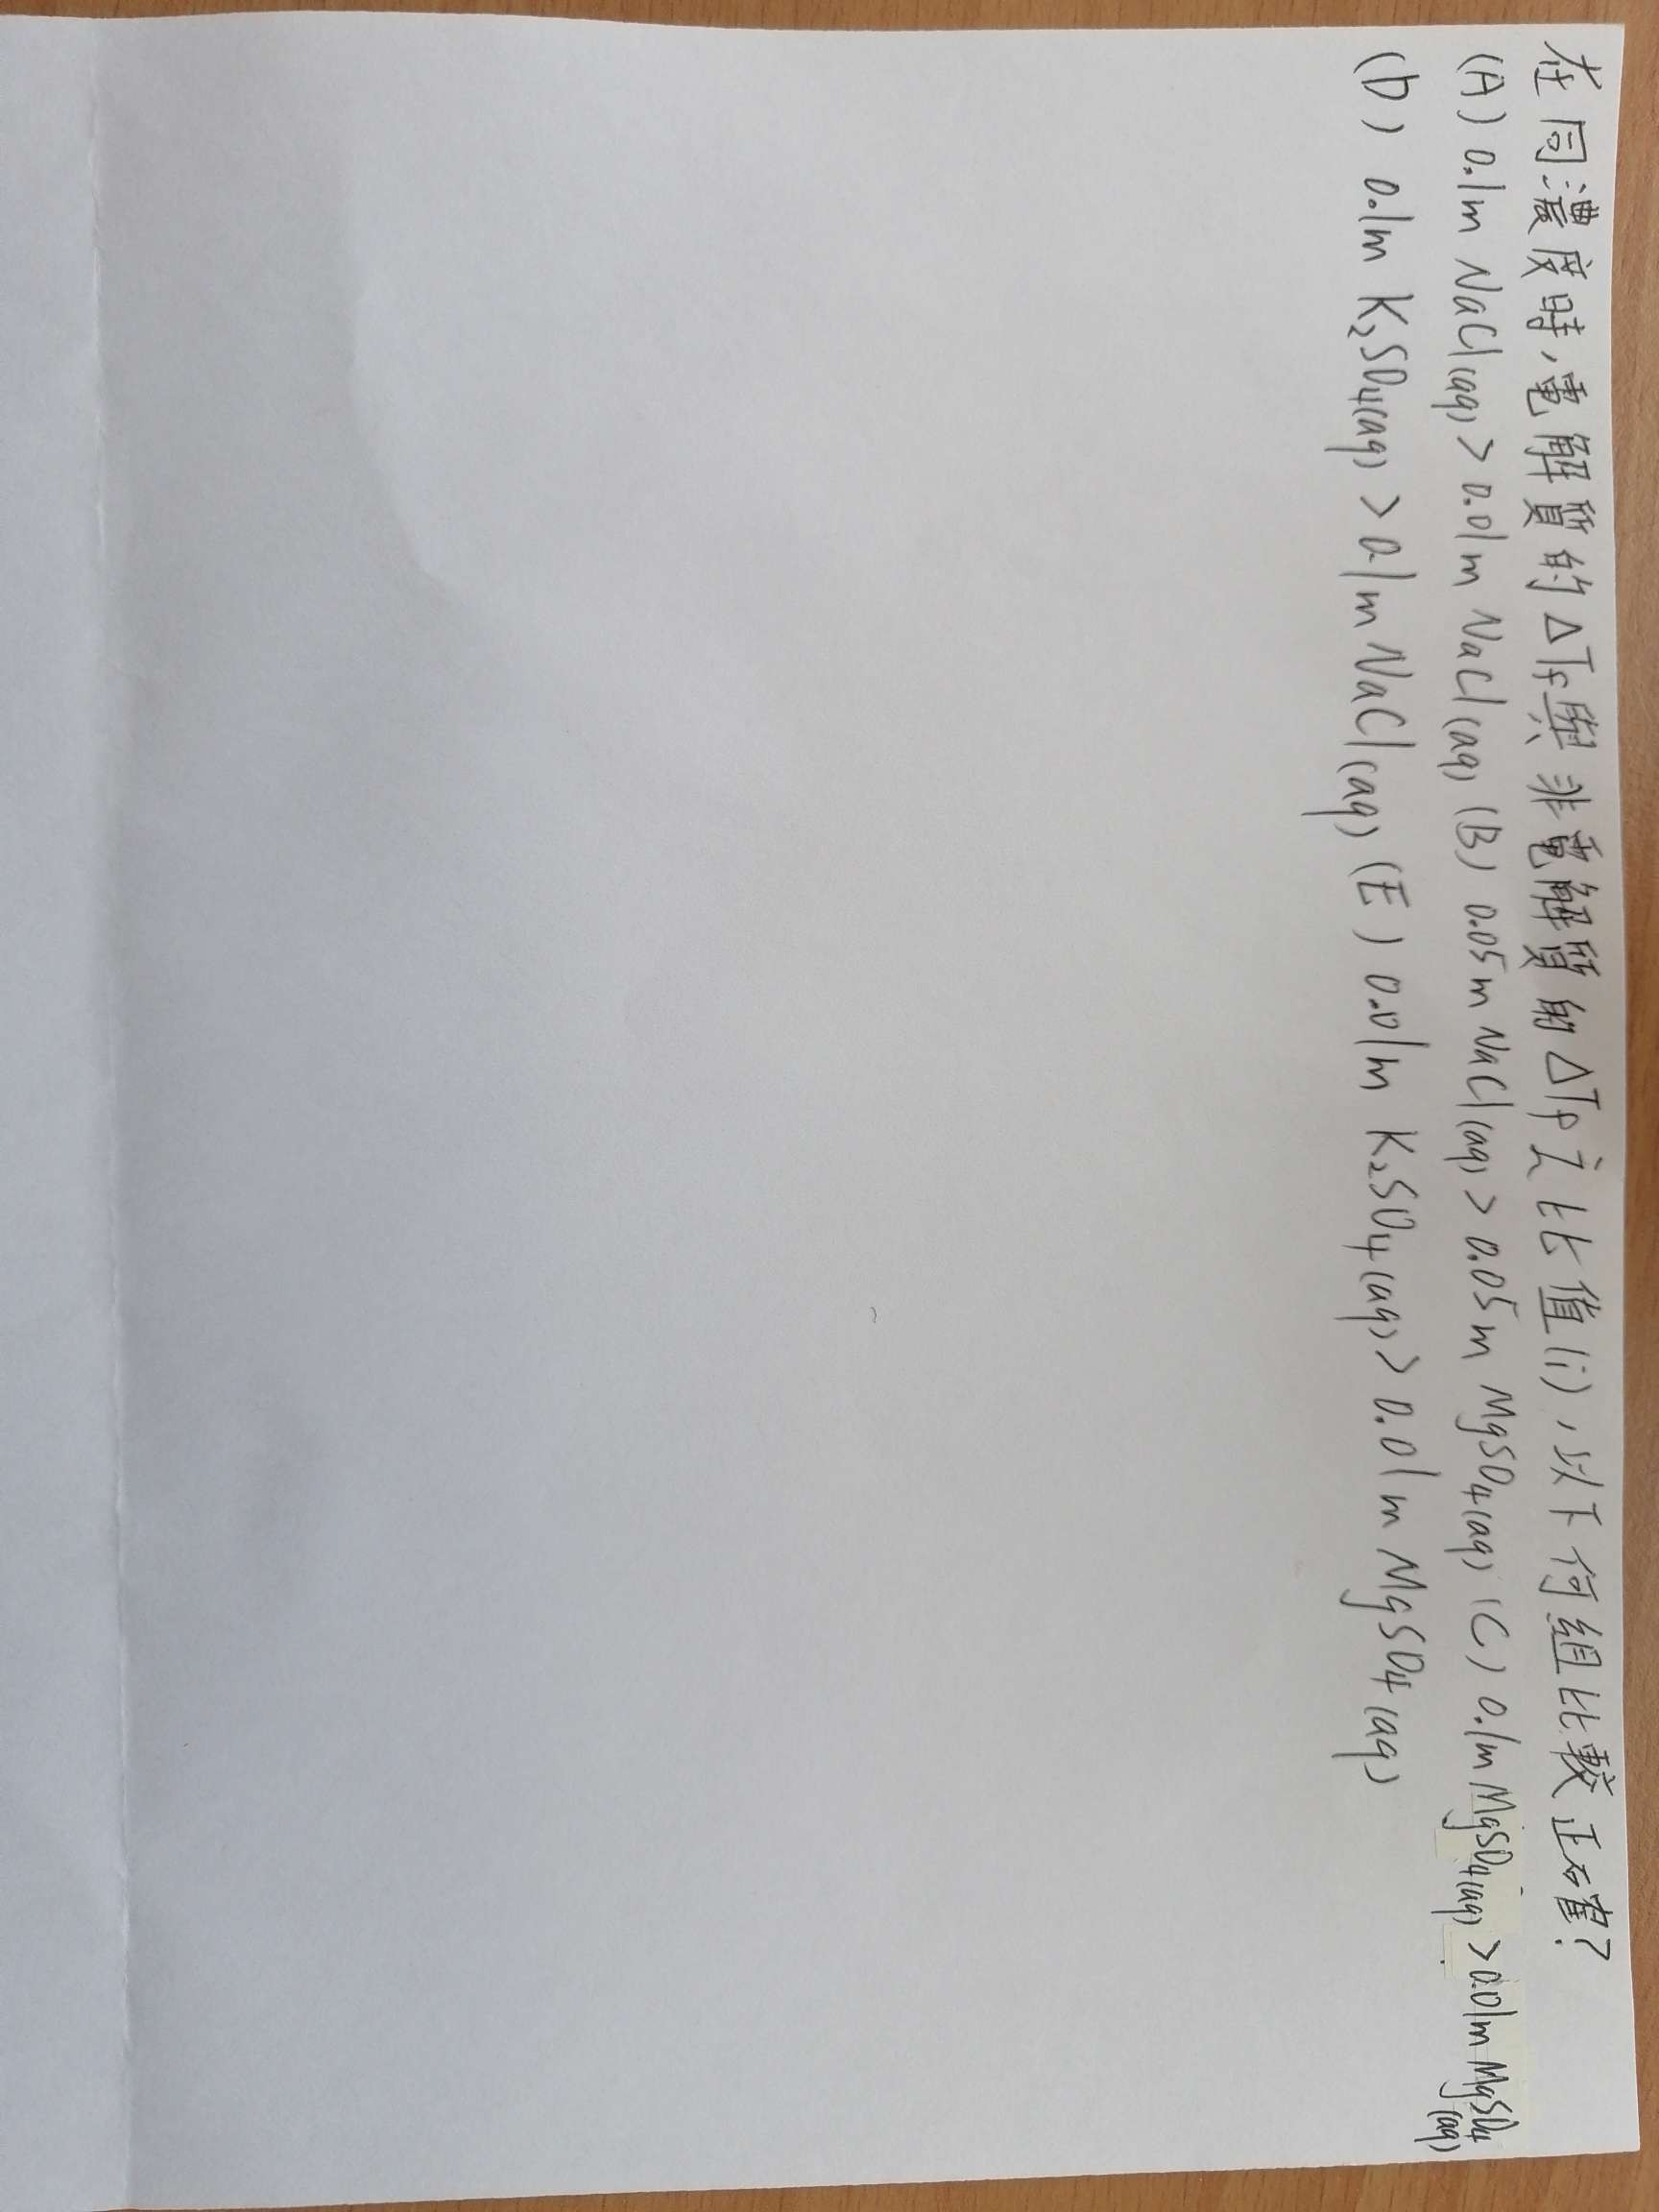 在同濃度時，電解質的ΔTf與非電解質的ΔTf之比值(i)，以下何組比較正確?
(A) 0.1m NaCl(aq) > 0.01m NaCl(aq) (B) 0.05m NaCl(aq) > 0.05m MgSO4(aq) (C) 0.1m MgSO4(aq) > 0.01m MgSO4(aq)
(D) 0.1m K2SO4(aq) > 0.1m NaCl(aq) (E) 0.01m K2SO4(aq) > 0.01m MgSO4(aq)